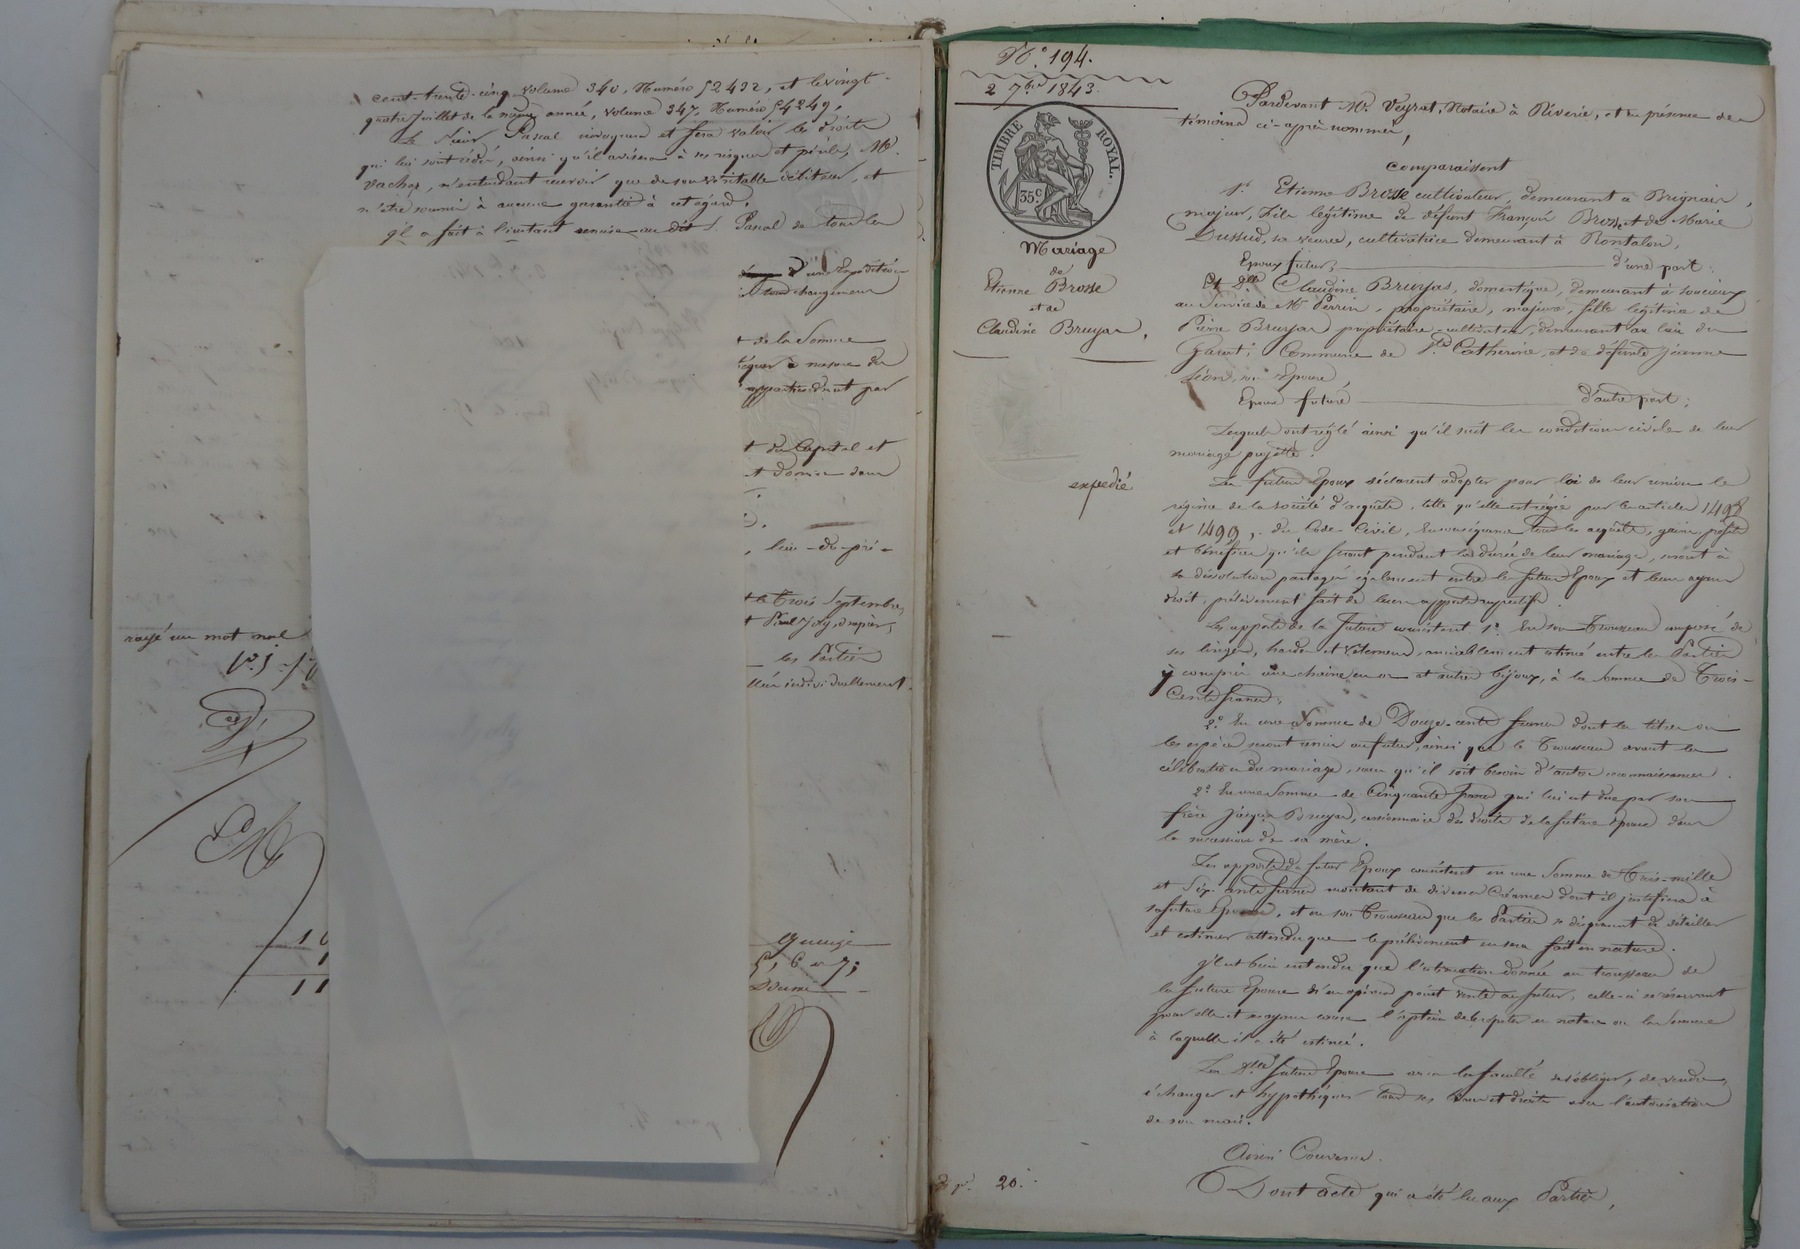 cent-trente-cinq volume 340, Numéro 52432, et le vingt-
quatre Juillet de la même année, volume 347, Numéro 54249.
Le Sieur Pascal invoquera et fera valoir les droits
qui lui sont cédés, ainsi qu'il avisera à ses risques et périls, Mr.
Vachez, n'entendant recevoir que de son véritable débiteur, et
n'être soumis à aucune garantie à cet égard.
Il a fait à l'instant remise au dit S. Pascal de tous les
d'une expédition
tout changement
de la Somme
à mesure du
appartiendront par
du Capital et
donné dans
lieu-du-pré-
le trois Septembre,
les Parties
individuellement.
rayé un mot nul
quinze
5, 6 et 7;
N.° 194.
2 7bre 1843.
TIMBRE ROYAL.
35 c.
Mariage
de
Etienne Brosse
et de
Claudine Bruyas.
expédié
20.
Pardevant Me. Veyrat, Notaire à Riverie, et en présence des
témoins ci-après nommés,
comparaissent
1°. Etienne Brosse cultivateur, demeurant à Brignais,
majeur, fils légitime de défunt François Brosse et de Marie
Dussud, sa veuve, cultivatrice demeurant à Rontalon,
Epoux futur, d'une part;
Et Dlle Claudine Bruyas, domestique, demeurant à Soucieux
au Service de Mr Perrin, propriétaire, majeure, fille légitime de
Pierre Bruyas propriétaire-cultivateur, demeurant au lieu du
Commune de Ste Catherine, et de défunte Jeanne
son Epouse,
Epouse future d'autre part;
Lesquels ont réglé ainsi qu'il suit les conditions civiles de leur
mariage projetté.
Les futurs Epoux déclarent adopter pour loi de leur union le
régime de la société d'acquêts, telle qu'elle est régie par les articles 1498
et 1499, du Code Civil, en conséquence tous les acquêts, gains, profits
et bénéfices qu'ils feront pendant la durée de leur mariage, seront à
sa dissolution partagés également entre les futurs Epoux et leurs ayans
droit, prélèvement fait de leurs apports respectifs.
Les apports de la future consistent 1°. En son Trousseau composé de
ses linges, hardes et vêtemens, amiablement estimé entre les Parties
y compris une chaine en or et autres bijoux, à la somme de Trois-
Cents francs;
2°. En une Somme de Douze-cents francs dont les titres ou
les espèces seront remis au futur, ainsi que le Trousseau avant la
célébration du mariage, sans qu'il soit besoin d'autre reconnaissance.
2°. En une Somme de Cinquante francs qui lui est due par son
frère Jacques Bruyas, cessionnaire des droits de la future Epouse dans
la succession de sa mère.
Les apports du futur Epoux consistent en une Somme de Trois-mille
et Six-cents francs montant de diverses Créances dont il justifiera à
sa future Epouse, et en son Trousseau que les Parties se dispensent de détailler
et estimer attendu que le prélèvement en sera fait en nature.
Il est bien entendu que l'estimation donnée au trousseau de
la future Epouse n'en opérera point vente au futur, celle-ci se réservant
pour elle et ses ayans cause l'option de les répéter en nature ou la somme
à laquelle il a été estimé.
La Dlle future Epouse aura la faculté de s'obliger, de vendre,
échanger et hypothéquer tous ses biens et droits avec l'autorisation
de son mari.
Ainsi Convenu.
Dont acte qui a été lu aux Parties,